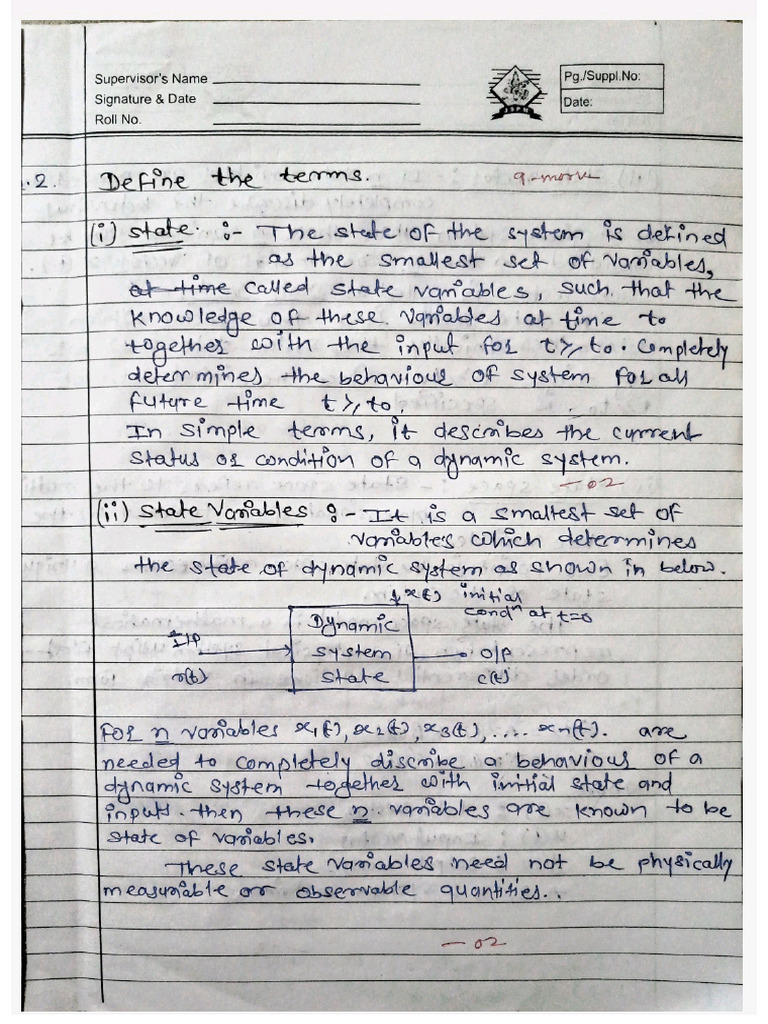 Supervisor's Name
Signature & Date
Roll No.
Pg./Suppl.No:
Date:
.2. Define the terms.
(i) state :- The state of the system is defined
as the smallest set of variables,
at time called state variables, such that the
knowledge of these variables at time to
together with the input for t≥to. Completely
determines the behaviour of system for all
future time t≥to.
In simple terms, it describes the current
status or condition of a dynamic system.
-02
(ii) State Variables :- It is a smallest set of
variables which determines
the state of dynamic system as shown in below.
↓ x(t) initial
condn at t=0
I/P
r(t)
Dynamic
system
state
O/P
c(t)
For n variables x1(t), x2(t), x3(t), .... xn(t). are
needed to completely discribe a behaviour of a
dynamic system together with initial state and
inputs then these n variables are known to be
state of variables.
These state variables need not be physically
measurable or observable quantities..
-02